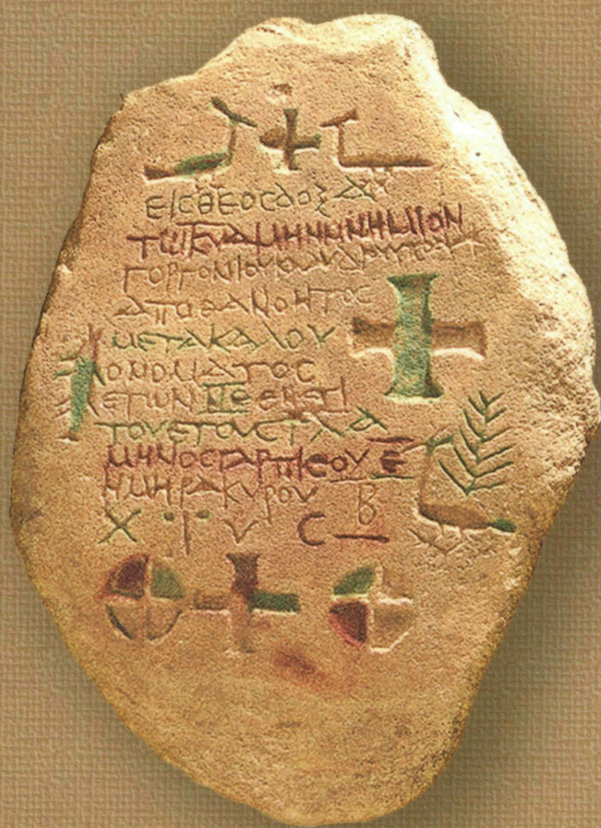 ΕΙϹΘΕΟϹΔΟΞΑ
ΤΩΚΥΑΜΗΝΜΝΗΜΙΟΝ
ΓΟΡΓΟΝΙΟΥ
ΑΠΟΘΑΝΟΝΤΟϹ
ΜΕΤΑΚΑΛΟΥ
ΟΝΟΜΑΤΟϹ
ΕΤΩΝ ΠΕ ΕΝΕΤΙ
ΤΟΥΕΤΟΥϹΤΛΑ
ΜΗΝΟϹΓΑΡΠΙΕΟΥ Ε
ΗΜΗΡΑΚΥΡΟΥ Β
Χ Ι Υ Ϲ